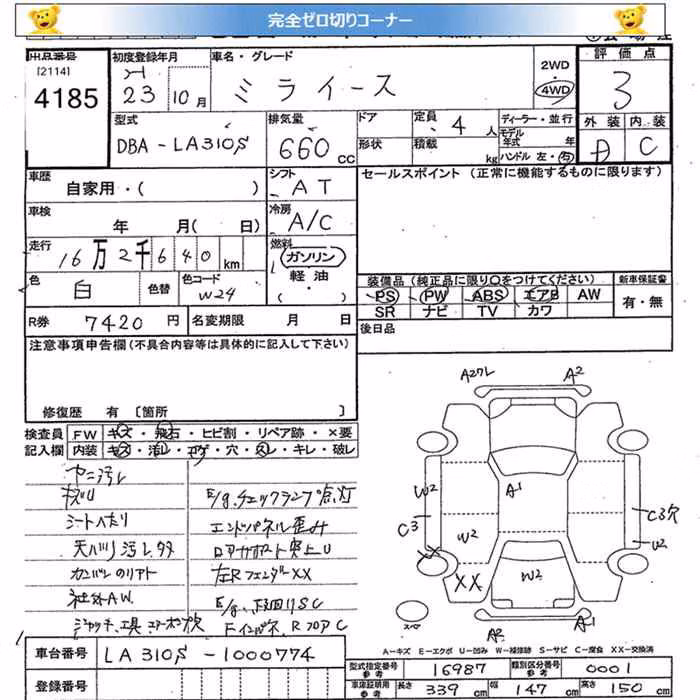 完全ゼロ切りコーナー
出品番号
[2114]
4185
初度登録年月
H
23年 10月
車名・グレード
ミライース
2WD
・
4WD
評価点
3
外装 内装
D C
型式
DBA-LA310S
排気量
660 CC
ドア
形状
定員 4 人
積載 kg
ディーラー・並行
モデル年式 年
ハンドル 左・右
車歴
自家用・( )
シフト
AT
セールスポイント (正常に機能するものに限ります)
車検
年 月( 日)
冷房
A/C
走行
16万2千640 km
燃料
ガソリン
軽油
・( )
色
白
色替
色コード
W24
装備品 (純正品に限り○をつけてください)
PS PW ABS エアB AW
SR ナビ TV カワ
新車保証書
有・無
R券 7420 円
名変期限 月 日
後日品
注意事項申告欄 (不具合内容等は具体的に記入して下さい)
修復歴 有 [箇所 ]
検査員記入欄
FW キズ・飛石・ヒビ割・リペア跡・×要
内装 キズ・汚レ・コゲ・穴・スレ・キレ・破レ
ヤニ汚レ
キズU
シートヘタリ
天バリ汚レ多
社外AW
E/g.チェックランプ点灯
エンドパネル歪み
左RフェンダーXX
E/g.下回りSC
Fインパネ、RフロアC
A2ワレ
A2
A1
W2
C3
W2
XX
XX
W2
C3穴
U2
スペア
A2
A1
A-キズ E-エクボ U-凹み W-補修跡 S-サビ C-腐食 XX-交換済
車台番号 LA310S-1000774
登録番号
型式指定番号 参考 16987
類別区分番号 参考 0001
車庫証明用 参考 長さ 339 cm 幅 147 cm 高さ 150 cm